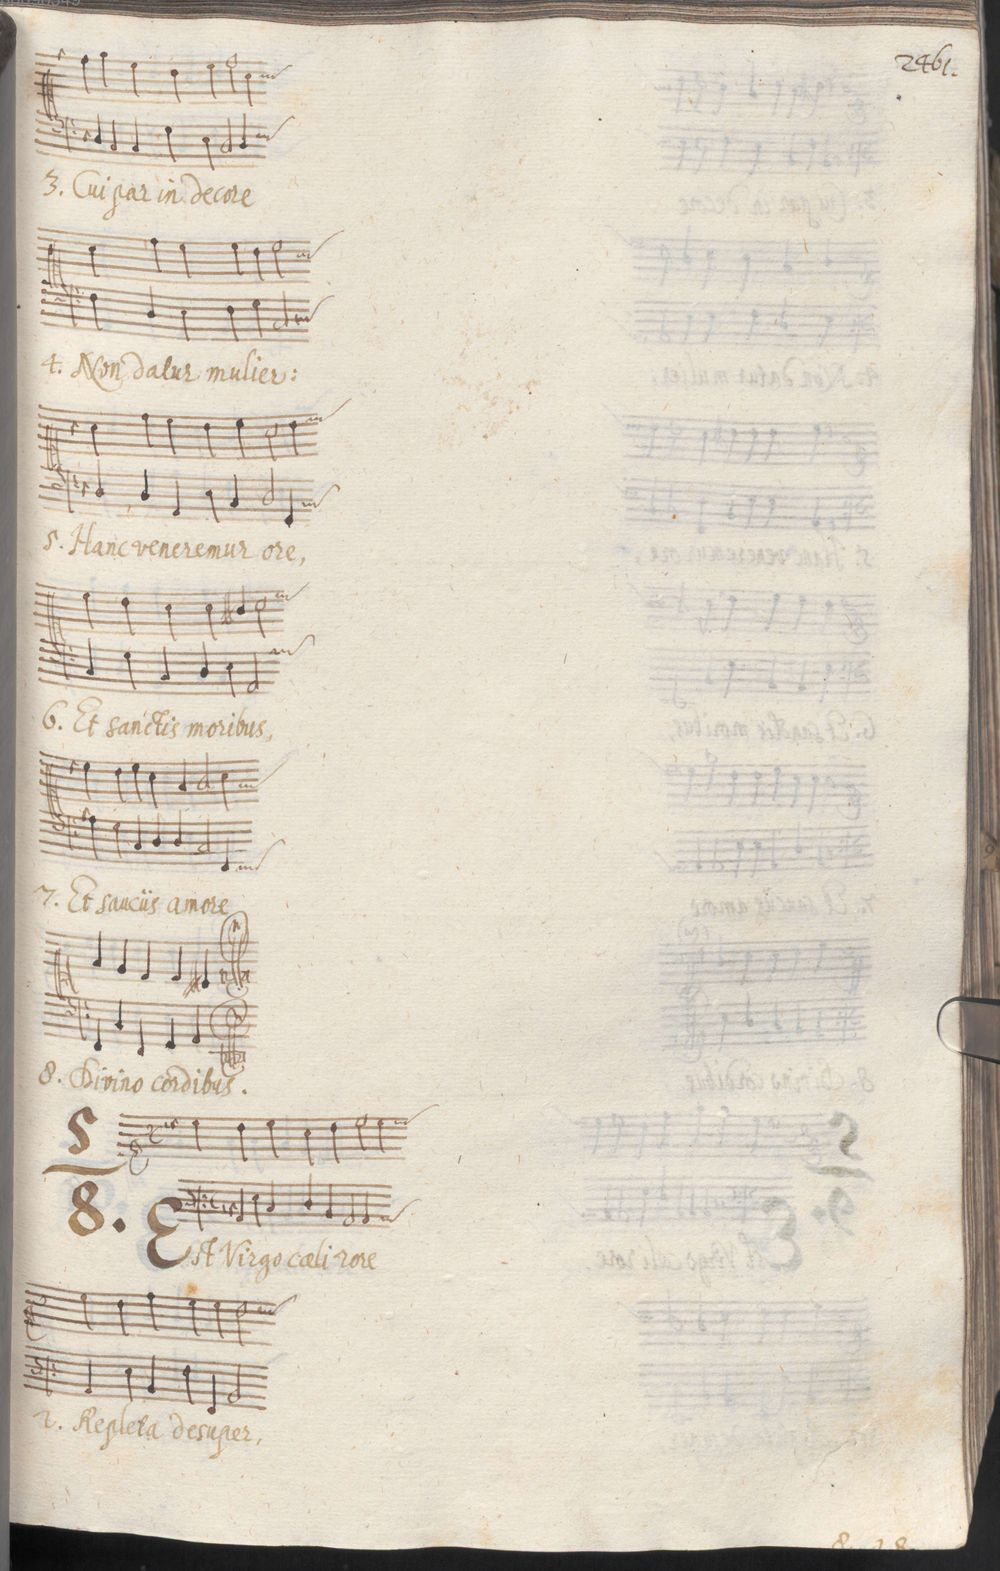 2461.
3. Cui par in decore
4. Non datur mulier:
5. Hanc veneremur ore,
6. Et sanctis moribus,
7. Et sauciis amore
8. Divino cordibus.
5
8.
Est Virgo cæli rore
2. Repleta desuper,